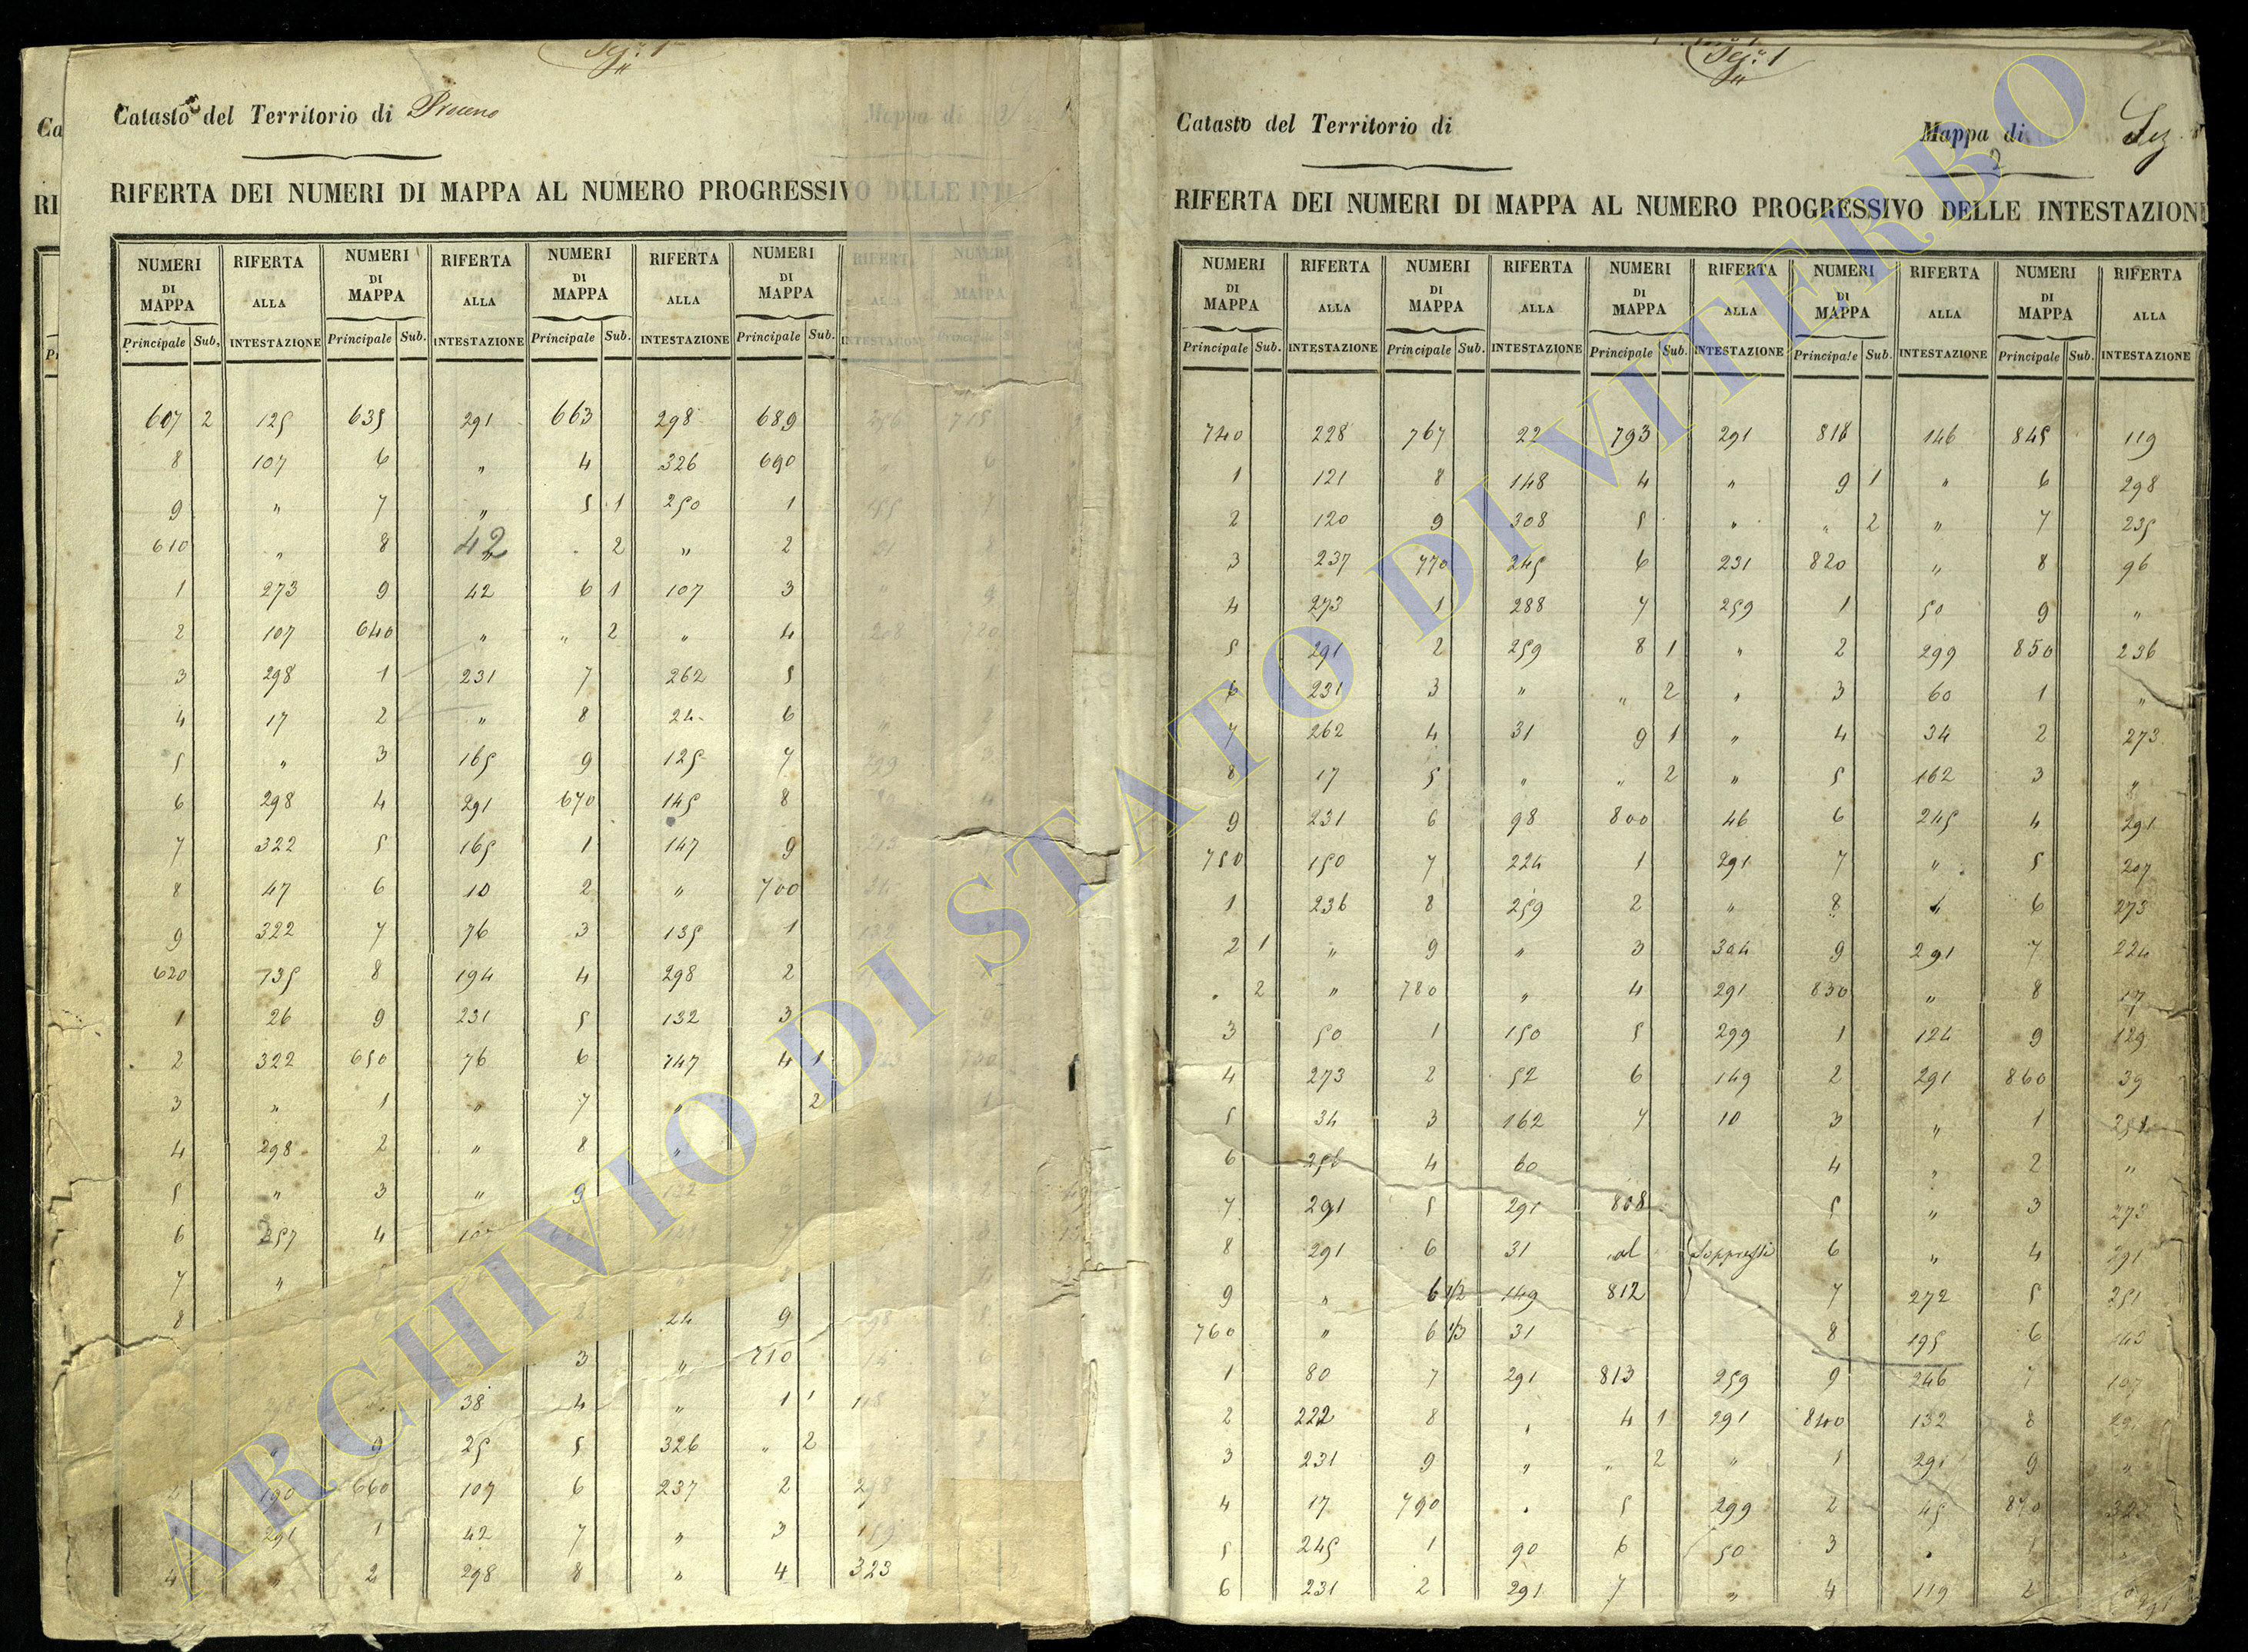 Segª. 1
Catasto del Territorio di Proceno
Mappa di 2
RIFERTA DEI NUMERI DI MAPPA AL NUMERO PROGRESSIVO DELLE INT
NUMERI DI MAPPA RIFERTA ALLA INTESTAZIONE NUMERI DI MAPPA RIFERTA ALLA INTESTAZIONE NUMERI DI MAPPA RIFERTA ALLA INTESTAZIONE NUMERI DI MAPPA
Principale Sub. Principale Sub. Principale Sub. Principale Sub.
607 2 125 635 291 663 298 689
8 107 6 " 4 326 690
9 " 7 " 5 1 250 1
610 " 8 42 2 " 2
1 273 9 42 6 1 107 3
2 107 640 " " 2 " 4
3 298 1 231 7 262 5
4 17 2 " 8 24 6
5 " 3 165 9 125 7
6 298 4 291 670 145 8
7 322 5 165 1 147 9
8 47 6 10 2 " 700
9 322 7 76 3 135 1
620 135 8 194 4 298 2
1 26 9 231 5 132 3
2 322 650 76 6 147 4 1
3 " 1 " 7 " 2
4 298 2 " 8 "
5 " 3 " 9
6 257 4
7 "
8 24 9
3 " 710
38 4 " 1 1
" 9 25 5 326 " 2
190 660 107 6 237 2 298
291 1 42 7 " 3 159
4 " 2 298 8 " 4 323
Segª. 1
Catasto del Territorio di
Mappa di 2
Sez
RIFERTA DEI NUMERI DI MAPPA AL NUMERO PROGRESSIVO DELLE INTESTAZIONI
NUMERI DI MAPPA RIFERTA ALLA INTESTAZIONE NUMERI DI MAPPA RIFERTA ALLA INTESTAZIONE NUMERI DI MAPPA RIFERTA ALLA INTESTAZIONE NUMERI DI MAPPA RIFERTA ALLA INTESTAZIONE NUMERI DI MAPPA RIFERTA ALLA INTESTAZIONE
Principale Sub. Principale Sub. Principale Sub. Principale Sub. Principale Sub.
740 228 767 22 793 291 818 146 845 119
1 121 8 148 4 " 9 1 " 6 298
2 120 9 308 5 " " 2 " 7 235
3 237 770 245 6 231 820 " 8 96
4 273 1 288 7 259 1 50 9 "
5 291 2 259 8 1 " 2 299 850 236
6 231 3 " " 2 " 3 60 1 "
7 262 4 31 9 1 " 4 34 2 273
8 17 5 " " 2 " 5 162 3 "
9 231 6 98 800 46 6 245 4 291
750 150 7 224 1 291 7 " 5 207
1 236 8 259 2 " 8 " 6 273
2 1 " 9 " 3 304 9 291 7 224
" 2 " 780 " 4 291 830 " 8 17
3 50 1 150 5 299 1 124 9 129
4 273 2 52 6 149 2 291 860 39
5 34 3 162 7 10 3 " 1 251
6 256 4 60 4 " 2 "
7 291 5 291 808 5 " 3 273
8 291 6 31 al Soppressi 6 " 4 291
9 " 6 1/2 149 812 7 272 5 251
760 " 6 1/3 31 8 195 6 143
1 80 7 291 813 259 9 246 7 107
2 222 8 " 4 1 291 840 132 8
3 231 9 " " 2 " 1 291 9 "
4 17 790 " 5 299 2 45 870 322
5 245 1 90 6 50 3 "
6 231 2 291 7 " 4 119 2
ARCHIVIO DI STATO DI VITERBO